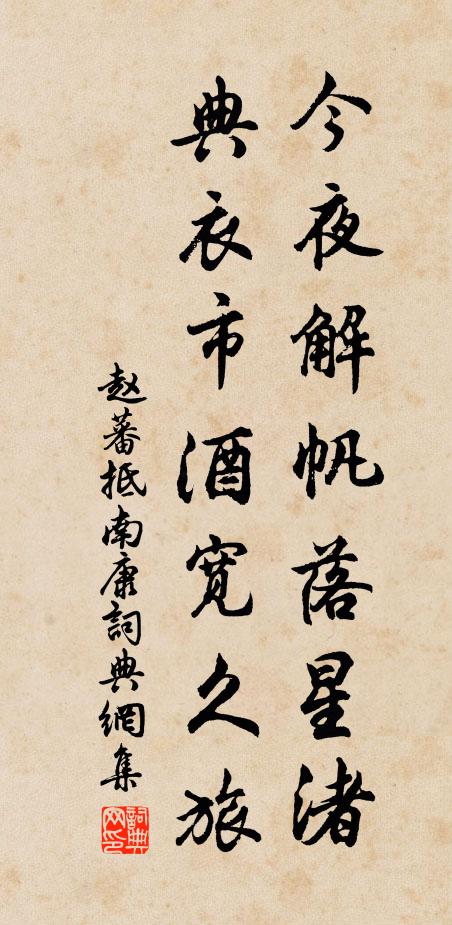 今夜解帆落星渚
典衣市酒寬久旅
赵蕃抵南康詞典網集
詞典网印